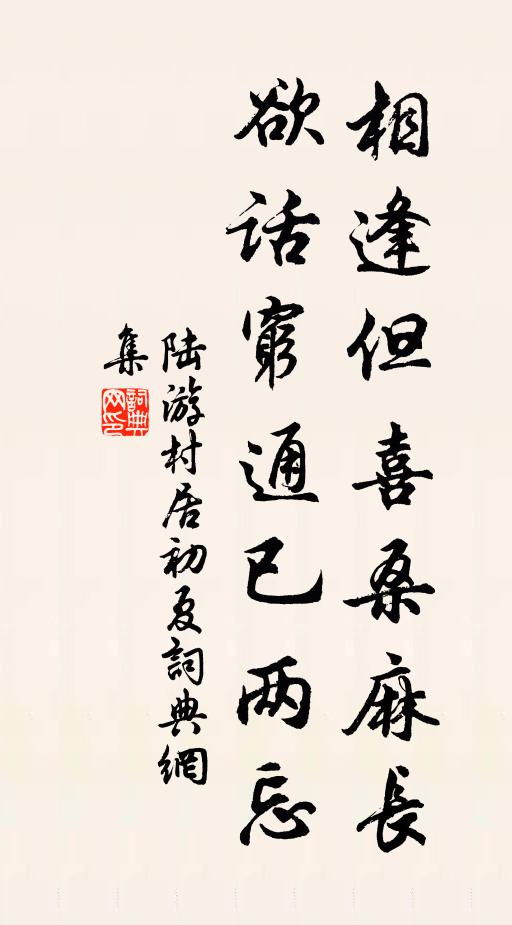 相逢但喜桑麻長
欲話窮通已两忘
陆游村居初夏詞典網
集
詞典
网印